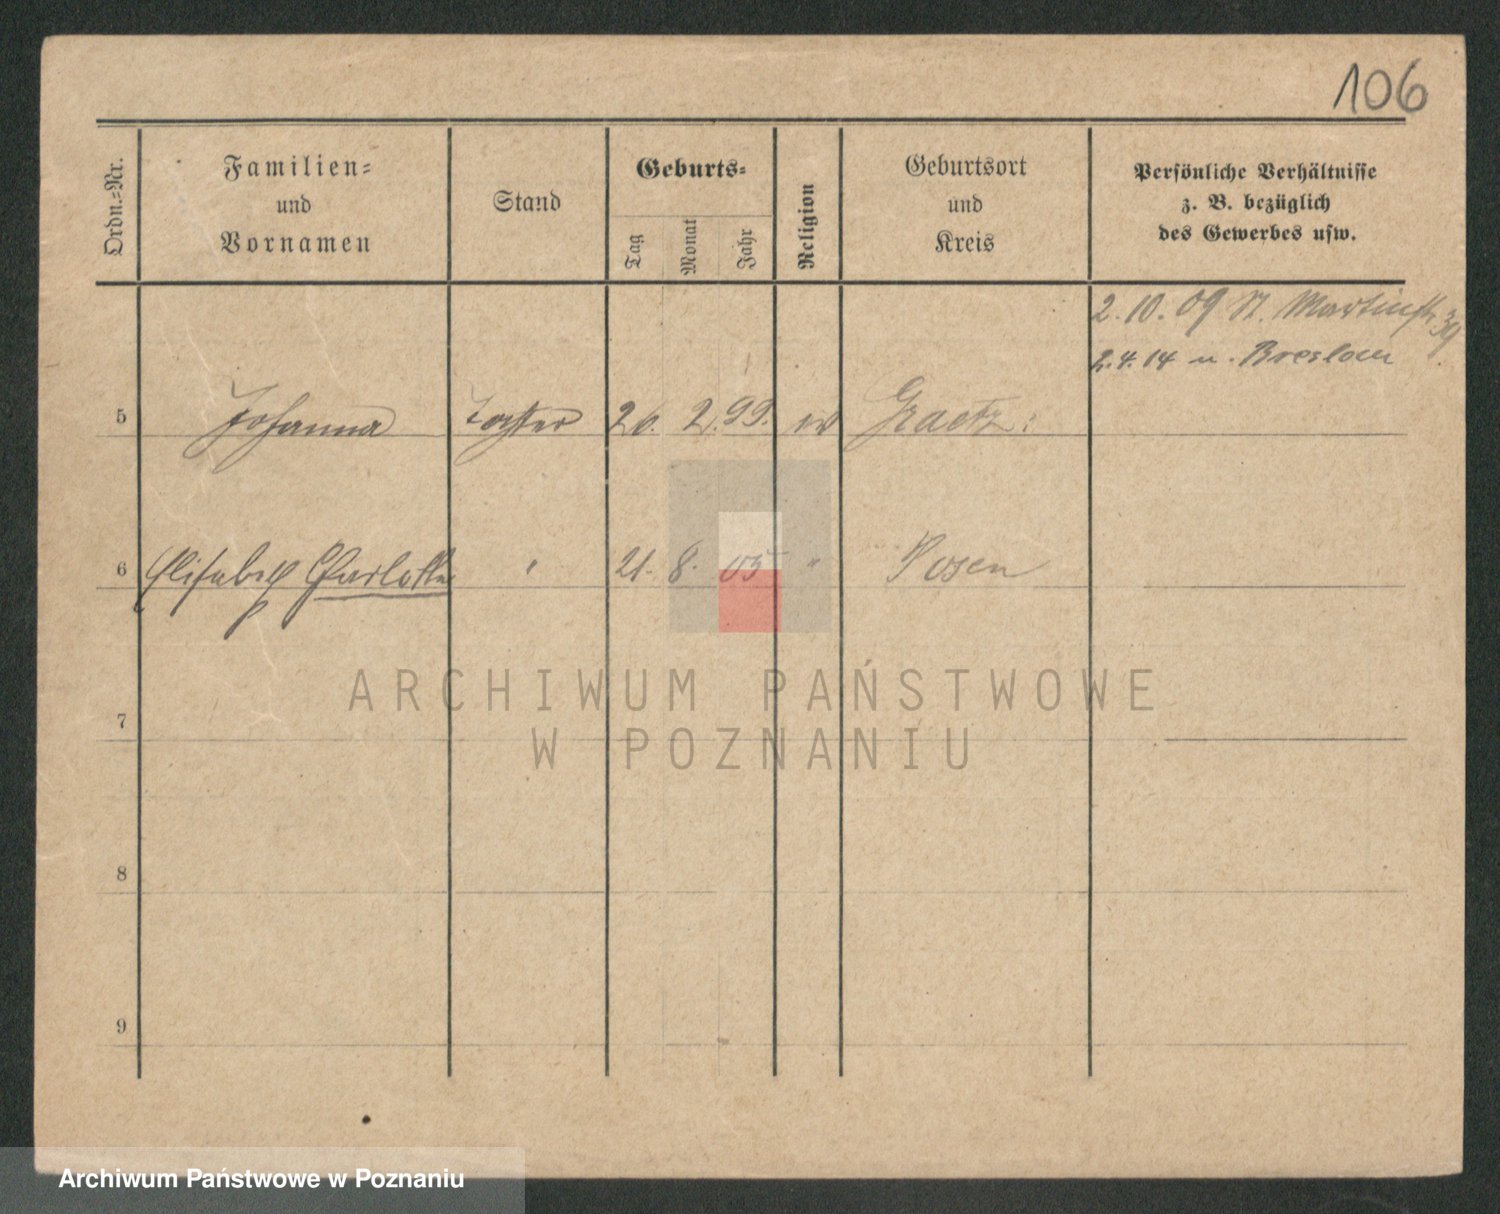 106
Ordn.-Nr.
Familien-
und
Vornamen
Stand
Geburts-
Tag
Monat
Jahr
Religion
Geburtsort
und
Kreis
Persönliche Verhältnisse
z. B. bezüglich
des Gewerbes usw.
2. 10. 09 St. Martinstr. 39
2. 4. 14 n. Breslau
5 Johanna Tochter 26. 2. 99. Graetz
6 Elisabeth Charlotte " 21. 8. 05 " Posen
7
8
9
ARCHIWUM PAŃSTWOWE
W POZNANIU
Archiwum Państwowe w Poznaniu